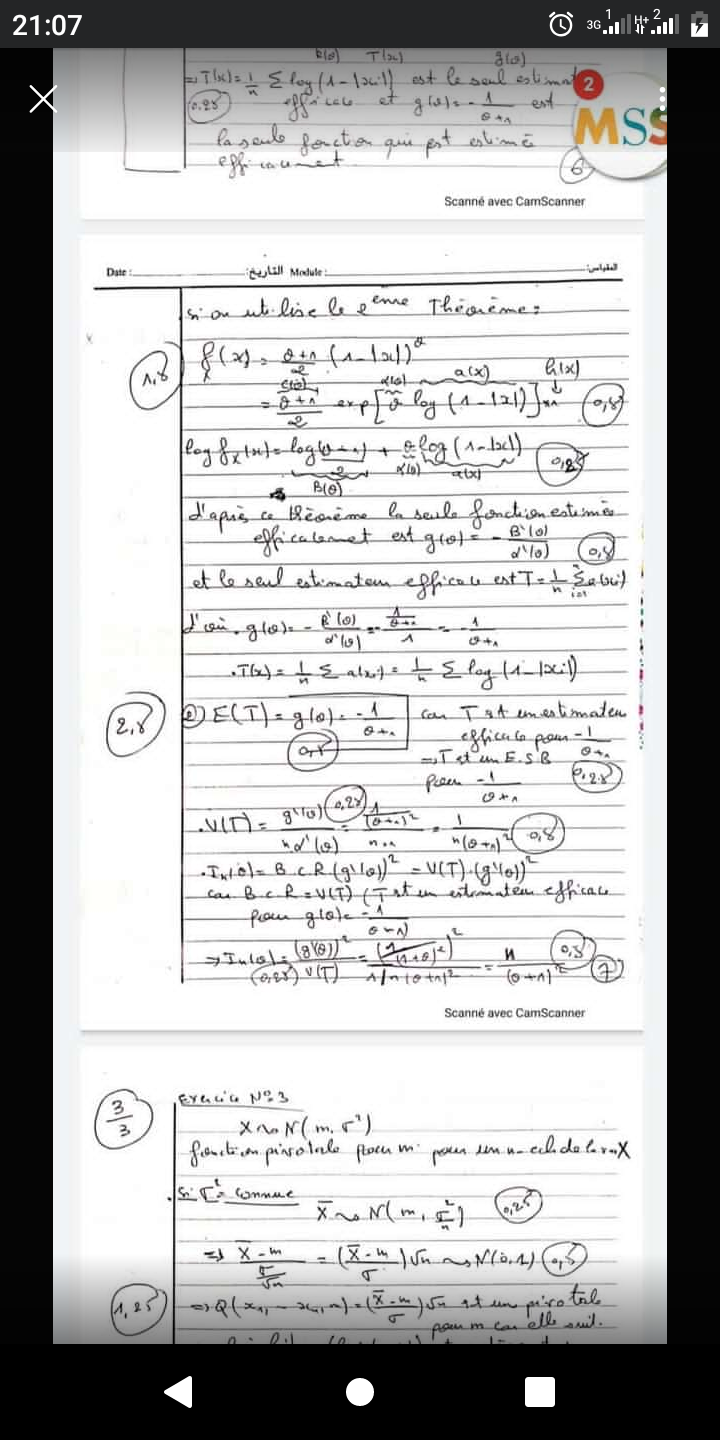 21:07
3G 1 H+ 2
k(θ) T(x) g(θ)
=> T(x) = 1/n Σ log(1-|xi|) est le seul estimat
0,25 efficace et g(θ) = -1/(θ+1) est
la seule fonction qui est estimée
efficacement.
6
2
MSS
Scanné avec CamScanner
Date : التاريخ: Module : المقياس:
si on utilise le 2ème Théorème :
1,5
f_X(x) = (θ+1)/2 (1-|x|)^θ
C(θ) α(θ) a(x) h(x)
= (θ+1)/2 exp[θ log(1-|x|)] × 1 0,5
log f_X(x) = log((θ+1)/2) + θ log(1-|x|) 0,25
B(θ) α(θ) a(x)
d'après ce théorème la seule fonction estimée
efficacement est g(θ) = -B'(θ)/α'(θ) 0,5
et le seul estimateur efficace est T = 1/n Σ a(xi)
i=1
d'où . g(θ) = -B'(θ)/α'(θ) = -(1/(θ+1))/1 = -1/(θ+1)
. T(x) = 1/n Σ a(xi) = 1/n Σ log(1-|xi|)
2,5
2) E(T) = g(θ) = -1/(θ+1) car T est un estimateur
0,5 efficace pour -1/(θ+1)
=> T est un E.S.B
pour -1/(θ+1) 0,25
. V(T) = g'(θ)/(n α'(θ)) 0,25 = (1/(θ+1)^2)/(n×1) = 1/(n(θ+1)^2) 0,5
. In(θ) = B.C.R (g'(θ))^2 = V(T).(g'(θ))^2
car B.C.R = V(T) (T est un estimateur efficace
pour g(θ) = -1/(θ+1))
=> In(θ) = (g'(θ))^2/V(T) = (1/(1+θ)^2)^2/(1/n(θ+1)^2) = n/(θ+1)^2 0,5
0,25
7
Scanné avec CamScanner
3/3
Exercice N°3
X ~ N(m, σ²)
fonction pivotale pour m pour un n-ech de la v.a X
. si σ² connue
X̄ ~ N(m, σ²/n) 0,25
=> (X̄-m)/(σ/√n) = ((X̄-m)/σ)√n ~ N(0,1) 0,5
1,25
=> Q(x1,...xn,m) = ((X̄-m)/σ)√n est une pivotale
pour m car elle suit